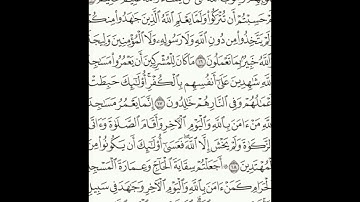 أَمْ حَسِبْتُمْ أَن تُتْرَكُوا۟ وَلَمَّا يَعْلَمِ ٱللَّهُ ٱلَّذِينَ جَـٰهَدُوا۟ مِنكُمْ
وَلَمْ يَتَّخِذُوا۟ مِن دُونِ ٱللَّهِ وَلَا رَسُولِهِۦ وَلَا ٱلْمُؤْمِنِينَ وَلِيجَةً
وَٱللَّهُ خَبِيرٌۢ بِمَا تَعْمَلُونَ ١٦ مَا كَانَ لِلْمُشْرِكِينَ أَن يَعْمُرُوا۟ مَسَـٰجِدَ
ٱللَّهِ شَـٰهِدِينَ عَلَىٰٓ أَنفُسِهِم بِٱلْكُفْرِ أُو۟لَـٰٓئِكَ حَبِطَتْ
أَعْمَـٰلُهُمْ وَفِى ٱلنَّارِ هُمْ خَـٰلِدُونَ ١٧ إِنَّمَا يَعْمُرُ مَسَـٰجِدَ
ٱللَّهِ مَنْ ءَامَنَ بِٱللَّهِ وَٱلْيَوْمِ ٱلْـَٔاخِرِ وَأَقَامَ ٱلصَّلَوٰةَ وَءَاتَى
ٱلزَّكَوٰةَ وَلَمْ يَخْشَ إِلَّا ٱللَّهَ فَعَسَىٰٓ أُو۟لَـٰٓئِكَ أَن يَكُونُوا۟ مِنَ
ٱلْمُهْتَدِينَ ١٨ ۞ أَجَعَلْتُمْ سِقَايَةَ ٱلْحَآجِّ وَعِمَارَةَ ٱلْمَسْجِدِ
ٱلْحَرَامِ كَمَنْ ءَامَنَ بِٱللَّهِ وَٱلْيَوْمِ ٱلْـَٔاخِرِ وَجَـٰهَدَ فِى سَبِيلِ